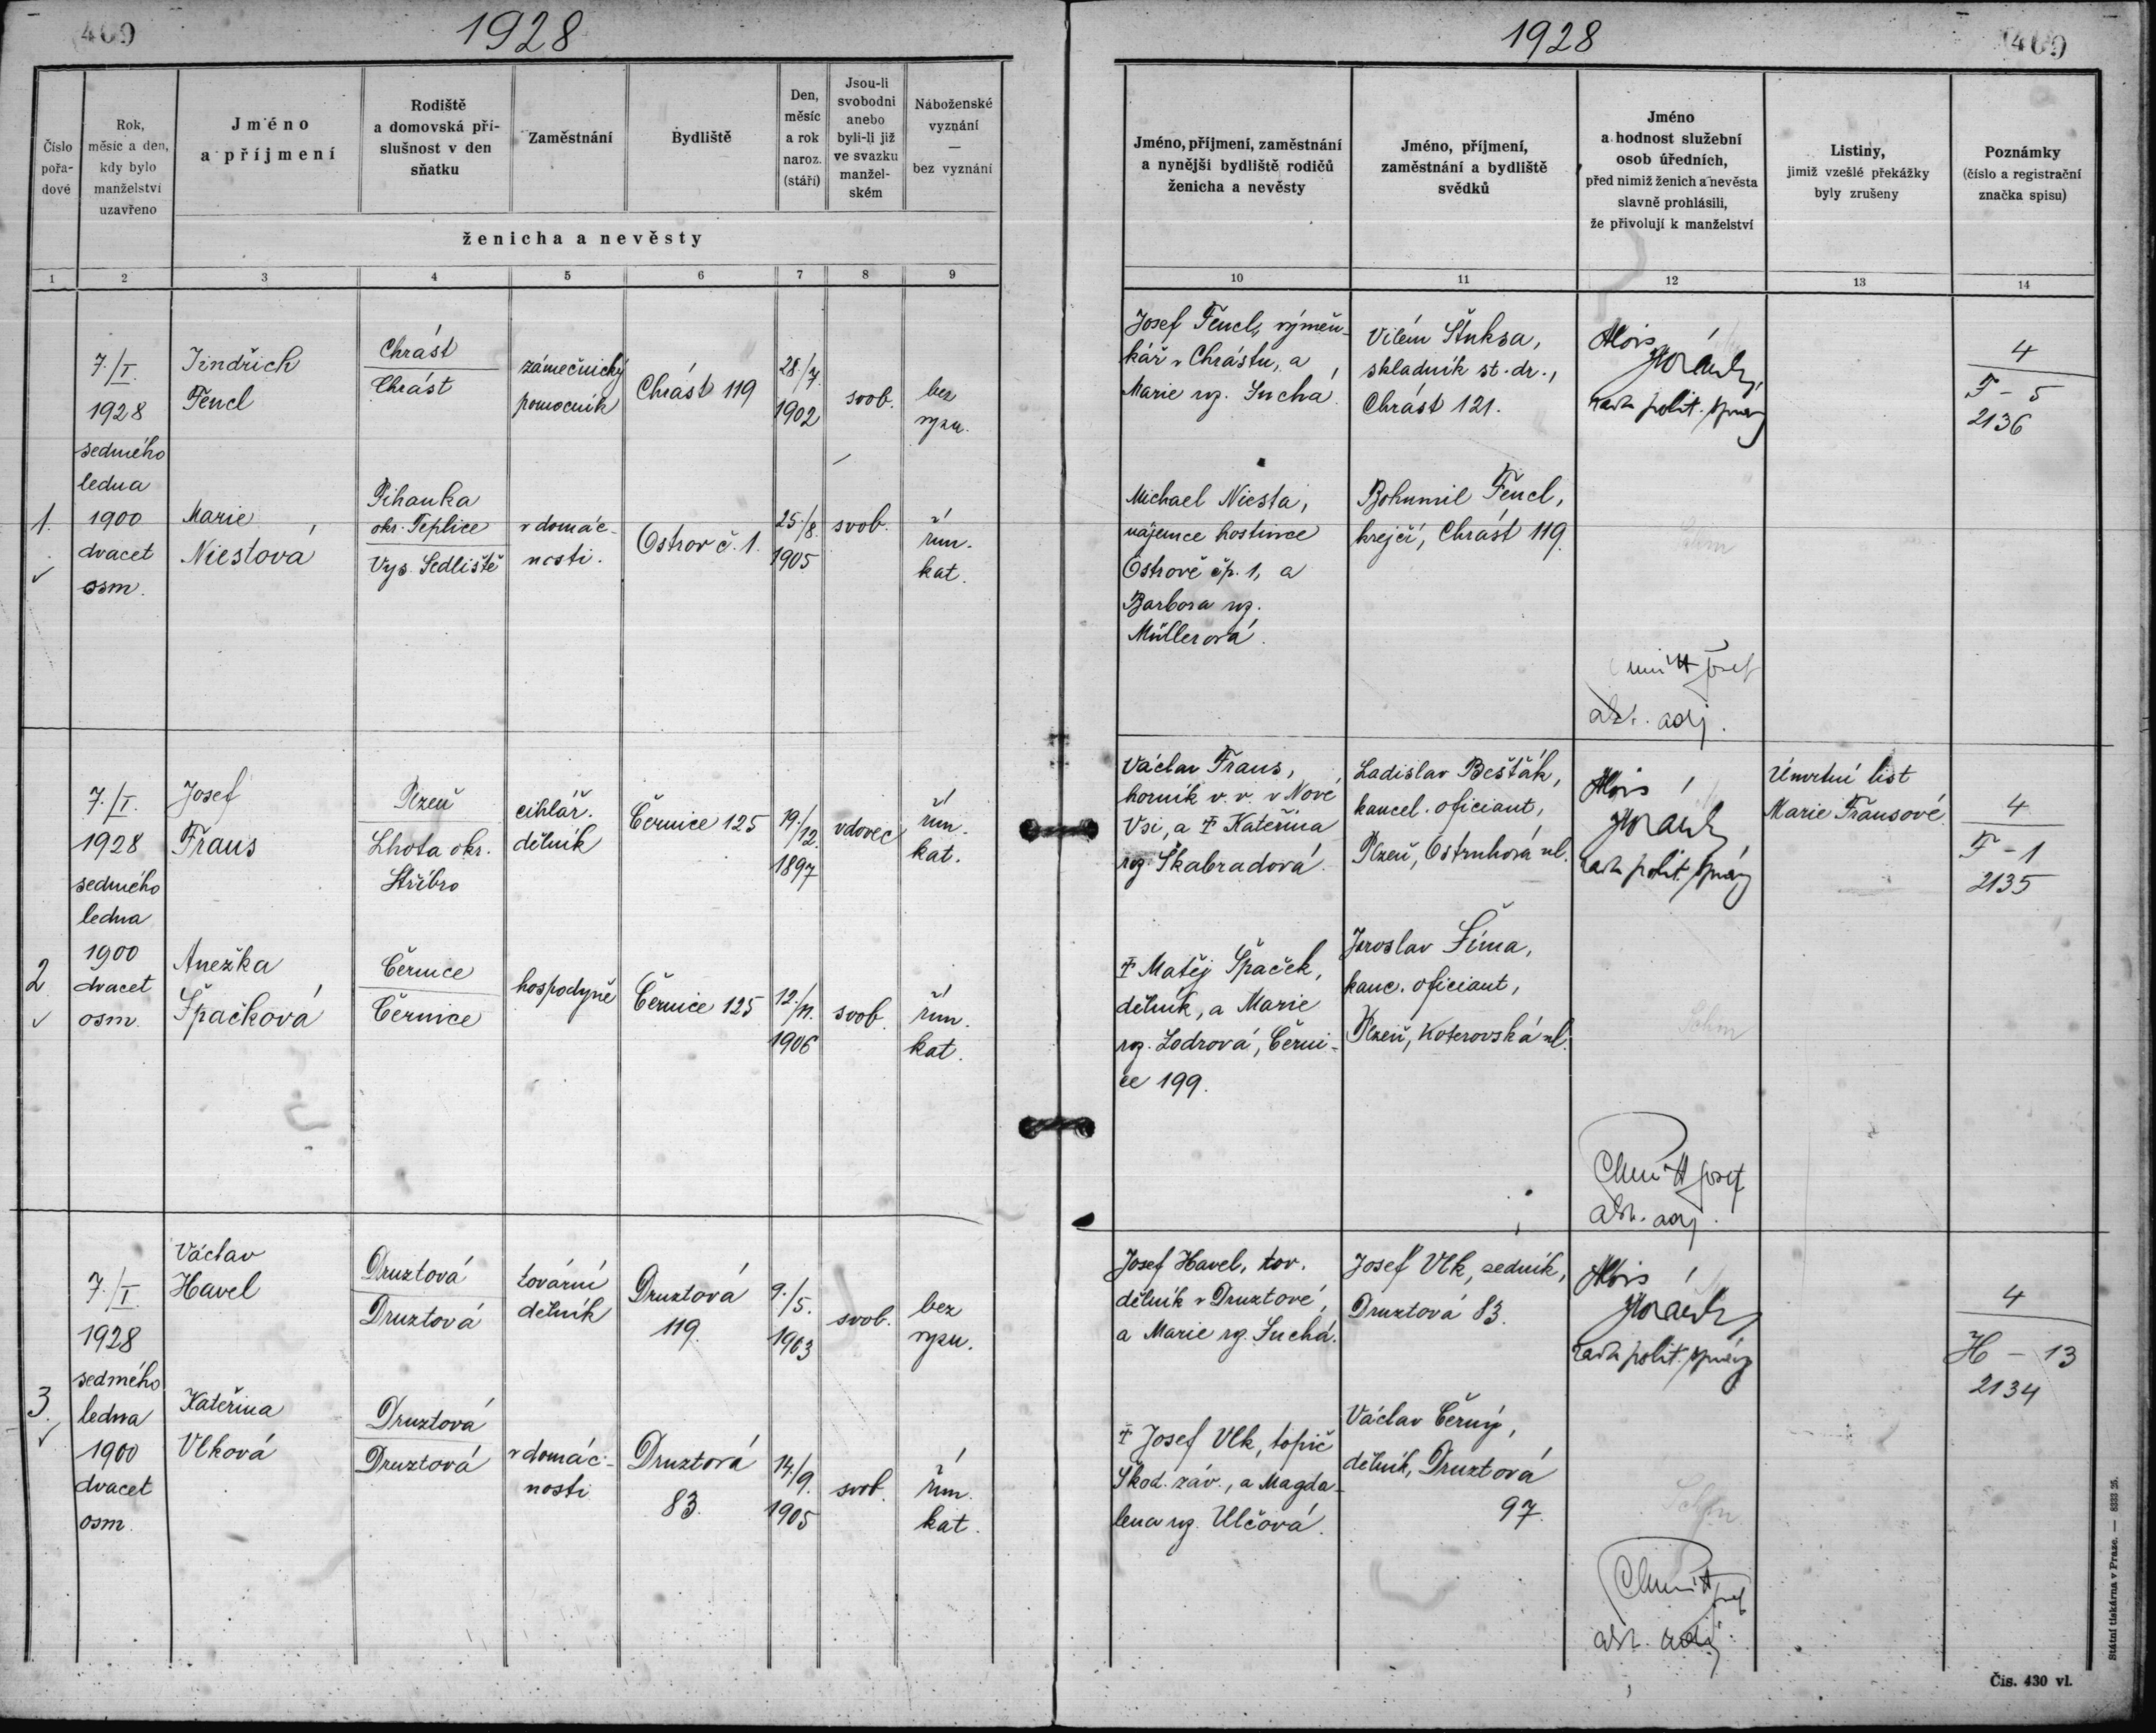 409
1928
Číslo
pořa-
dové
Rok,
měsíc a den,
kdy bylo
manželství
uzavřeno
Jméno
a příjmení
Rodiště
a domovská pří-
slušnost v den
sňatku
Zaměstnání
Bydliště
Den,
měsíc
a rok
naroz.
(stáří)
Jsou-li
svobodni
anebo
byli-li již
ve svazku
manžel-
ském
Náboženské
vyznání
—
bez vyznání
ženicha a nevěsty
1 2 3 4 5 6 7 8 9
1.
7./I.
1928
sedmého
ledna
1900
dvacet
osm.
Jindřich
Fencl
Chrást
Chrást
zámečnický
pomocník
Chrást 119
28./7.
1902
svob.
bez
vyzn.
Marie
Niestová
Pihanka
okr. Teplice
Vys. Sedliště
v domác-
nosti.
Ostrov č. 1.
25./8.
1905
svob.
řím.
kat.
2
7./I.
1928
sedmého
ledna
1900
dvacet
osm.
Josef
Fraus
Plzeň
Lhota okr.
Stříbro
cihlář.
dělník
Černice 125
19./12.
1897
vdovec
řím.
kat.
Anežka
Špačková
Černice
Černice
hospodyně
Černice 125
12./11.
1906
svob.
řím.
kat.
3.
7./I.
1928
sedmého
ledna
1900
dvacet
osm.
Václav
Havel
Druztová
Druztová
tovární
dělník
Druztová
119.
9./5.
1903
svob.
bez
vyzn.
Kateřina
Vlková
Druztová
Druztová
v domác-
nosti
Druztová
83.
14./9.
1905
svob.
řím.
kat.
1928
409
Jméno, příjmení, zaměstnání
a nynější bydliště rodičů
ženicha a nevěsty
Jméno, příjmení,
zaměstnání a bydliště
svědků
Jméno
a hodnost služební
osob úředních,
před nimiž ženich a nevěsta
slavně prohlásili,
že přivolují k manželství
Listiny,
jimiž vzešlé překážky
byly zrušeny
Poznámky
(číslo a registrační
značka spisu)
10 11 12 13 14
Josef Fencl, výměn-
kář v Chrástu, a
Marie roz. Suchá.
Vilém Štuksa,
skladník st. dr.,
Chrást 121.
Alois
rada polit. správy
4
F - 5
2136
Michael Niesta,
nájemce hostince
Ostrově čp. 1, a
Barbora roz.
Müllerová.
Bohumil Fencl,
krejčí, Chrást 119.
Josef
adj.
Václav Fraus,
horník v. v. v Nové
Vsi, a † Kateřina
roz. Škabradová.
Ladislav Bešťák,
kancel. oficiant,
Plzeň, Ostruhová ul.
Alois
rada polit. správy
Úmrtní list
Marie Frausové.
4
F - 1
2135
† Matěj Špaček,
dělník, a Marie
roz. Lodrová, Černi-
ce 199.
Jaroslav Šíma,
kanc. oficiant,
Plzeň, Koterovská ul.
Schm
Josef
adj.
Josef Havel, tov.
dělník v Druztové,
a Marie roz. Suchá.
Josef Vlk, zedník,
Druztová 83.
Alois
rada polit. správy
4
H - 13
2134
† Josef Vlk, topič
Škod. záv., a Magda-
lena roz. Ulčová.
Václav Černý,
dělník, Druztová
97.
Schm
adj.
Státní tiskárna v Praze. — 8333 26.
Čís. 430 vl.